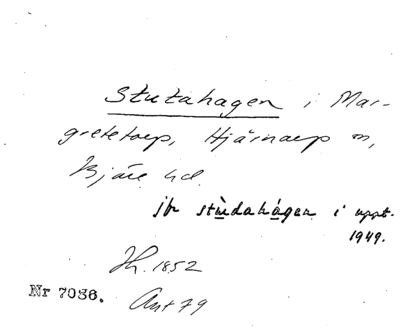 Stutahagen i Mar-
gretetorp, Hjärnarp sn,
Bjäre hd.
jfr stùdahágen i uppt.
1949.
Jh. 1852
Nr 7036. Ant 79